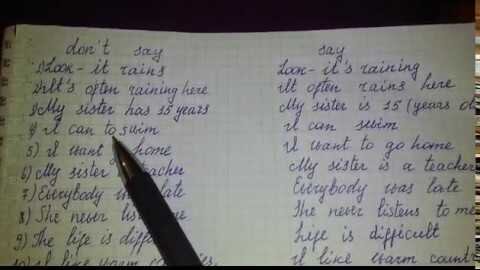 don't say say
1) Look - it rains Look - it's raining
2) It's often raining here It often rains here
3) My sister has 15 years My sister is 15 (years
4) I can to swim I can swim
5) I want home I want to go home
6) My sister teacher My sister is a teacher
7) Everybody late Everybody was late
8) She never She never listens to me
9) The life is Life is difficult
I like warm I like warm